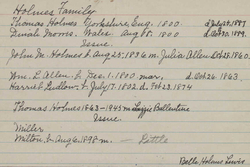 Holmes Family
Thomas Holmes Yorkshire, Eng. 1800. d July 29, 1887
Dinah Moms. Wales. Aug 85. 1800. d Dec 30. 1879.
Issue
John M. Holmes b Aug 25, 1836 m. Julia Allen b Oct 28. 1860.
Wm. L. Allen b Dec. 1. 1800 mar. d Oct 26. 1863.
Harriet Ludlow b July 17. 1802. d. Feb 23. 1874
Thomas Holmes 1863–1945 m Lizzie Ballentine
Issue.
Miller
Milton, b Aug 6. 1898 m. – Little
Belle Holmes Lewis